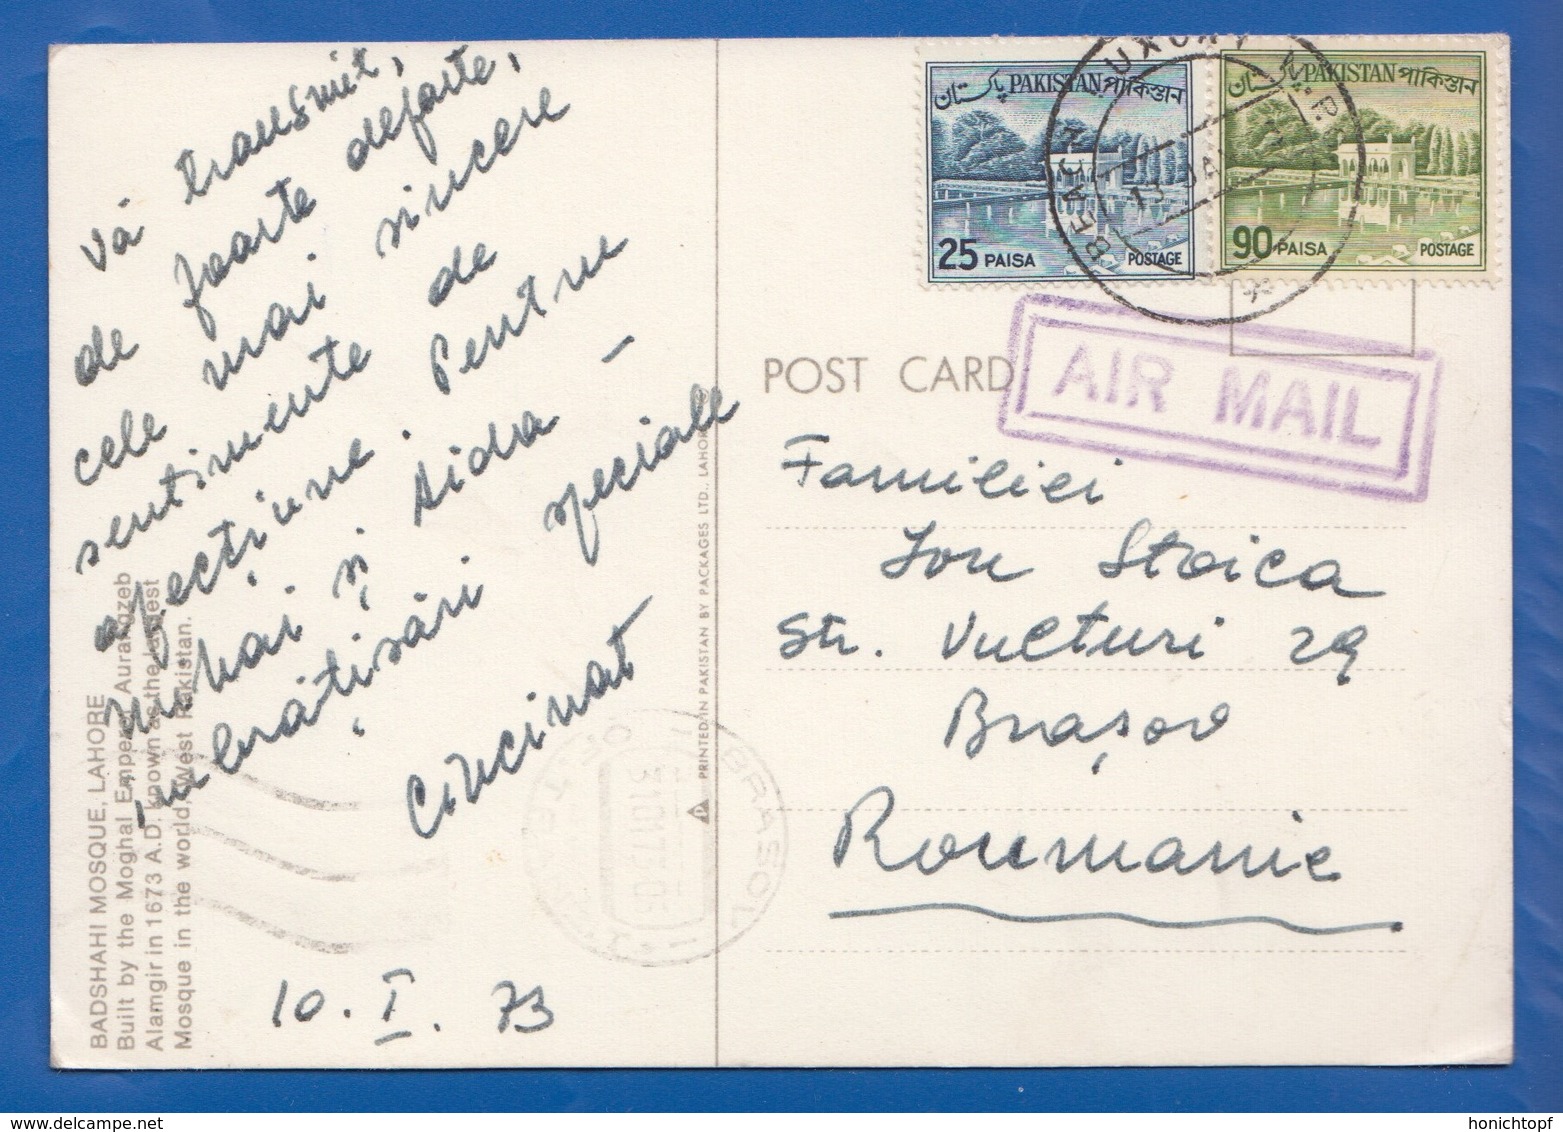 Vă transmit,
de foarte departe,
cele mai sincere
sentimente de
afecțiune. Pentru
Mihai și Sidra –
îmbrățișări speciale
Cincinat
10. I. 73
BADSHAHI MOSQUE, LAHORE
Built by the Moghal Emperor Aurangzeb
Alamgir in 1673 A.D. known as the largest
Mosque in the world, West Pakistan.
PRINTED IN PAKISTAN BY PACKAGES LTD., LAHORE
پاکستان PAKISTAN পাকিস্তান
25 PAISA POSTAGE
پاکستان PAKISTAN পাকিস্তান
90 PAISA POSTAGE
BEACH LUXURY
13 JAN
POST CARD
AIR MAIL
Familiei
Ion Stoica
Str. Vulturi 29
Brașov
Roumanie
BRASOV
310173.06
delcampe.net
honichtopf